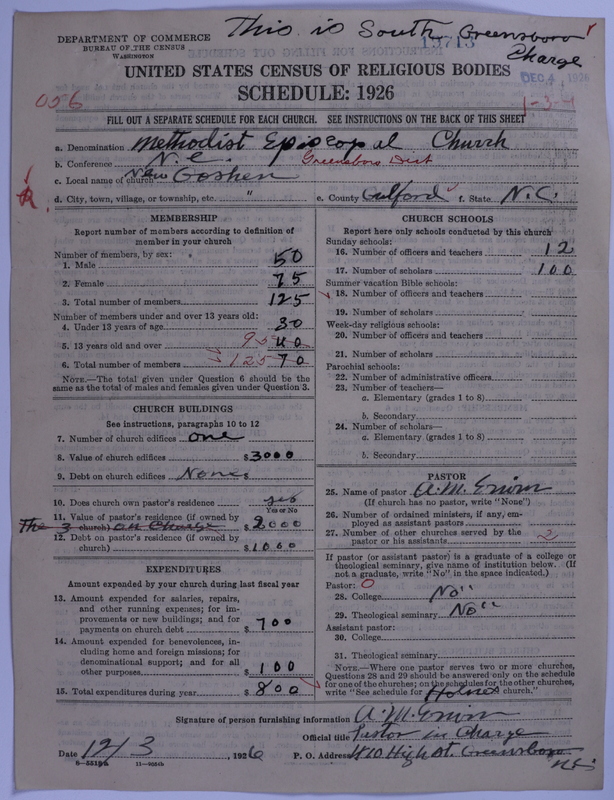 This is South Greensboro
Charge
DEPARTMENT OF COMMERCE
BUREAU OF THE CENSUS
WASHINGTON
DEC 4 1926
UNITED STATES CENSUS OF RELIGIOUS BODIES
SCHEDULE: 1926
056
1-3-4
FILL OUT A SEPARATE SCHEDULE FOR EACH CHURCH. SEE INSTRUCTIONS ON THE BACK OF THIS SHEET
a. Denomination Methodist Episcopal Church
b. Conference N.C. Greensboro Dist
c. Local name of church New Goshen
d. City, town, village, or township, etc. " e. County Guilford f. State N.C.
MEMBERSHIP
Report number of members according to definition of
member in your church
Number of members, by sex:
1. Male 50
2. Female 75
3. Total number of members 125
Number of members under and over 13 years old:
4. Under 13 years of age 30
5. 13 years old and over 95 40
6. Total number of members 125 70
NOTE.—The total given under Question 6 should be the
same as the total of males and females given under Question 3.
CHURCH BUILDINGS
See instructions, paragraphs 10 to 12
7. Number of church edifices one
8. Value of church edifices $3000
9. Debt on church edifices None $
10. Does church own pastor's residence yes
Yes or No
11. Value of pastor's residence (if owned by
The 3 church) on Charge $2000
12. Debt on pastor's residence (if owned by
church) $1000
EXPENDITURES
Amount expended by your church during last fiscal year
13. Amount expended for salaries, repairs,
and other running expenses; for im-
provements or new buildings; and for
payments on church debt $700
14. Amount expended for benevolences, in-
cluding home and foreign missions; for
denominational support; and for all
other purposes $100
15. Total expenditures during year $800
CHURCH SCHOOLS
Report here only schools conducted by this church
Sunday schools:
16. Number of officers and teachers 12
17. Number of scholars 100
Summer vacation Bible schools:
18. Number of officers and teachers
19. Number of scholars
Week-day religious schools:
20. Number of officers and teachers
21. Number of scholars
Parochial schools:
22. Number of administrative officers
23. Number of teachers—
a. Elementary (grades 1 to 8)
b. Secondary
24. Number of scholars—
a. Elementary (grades 1 to 8)
b. Secondary
PASTOR
25. Name of pastor A.M.
(If church has no pastor, write "None")
26. Number of ordained ministers, if any, em-
ployed as assistant pastors
27. Number of other churches served by the
pastor or his assistants 2
If pastor (or assistant pastor) is a graduate of a college or
theological seminary, give name of institution below. (If
not a graduate, write "No" in the space indicated.)
Pastor: 0
28. College No"
29. Theological seminary No"
Assistant pastor:
30. College
31. Theological seminary
NOTE.—Where one pastor serves two or more churches,
Questions 28 and 29 should be answered only on the schedule
for one of the churches; on the schedules for the other churches,
write "See schedule for church."
Signature of person furnishing information A.M.
Official title Pastor in Charge
Date 12/3, 1926 P. O. Address 410 High St. Greensboro
N.C.